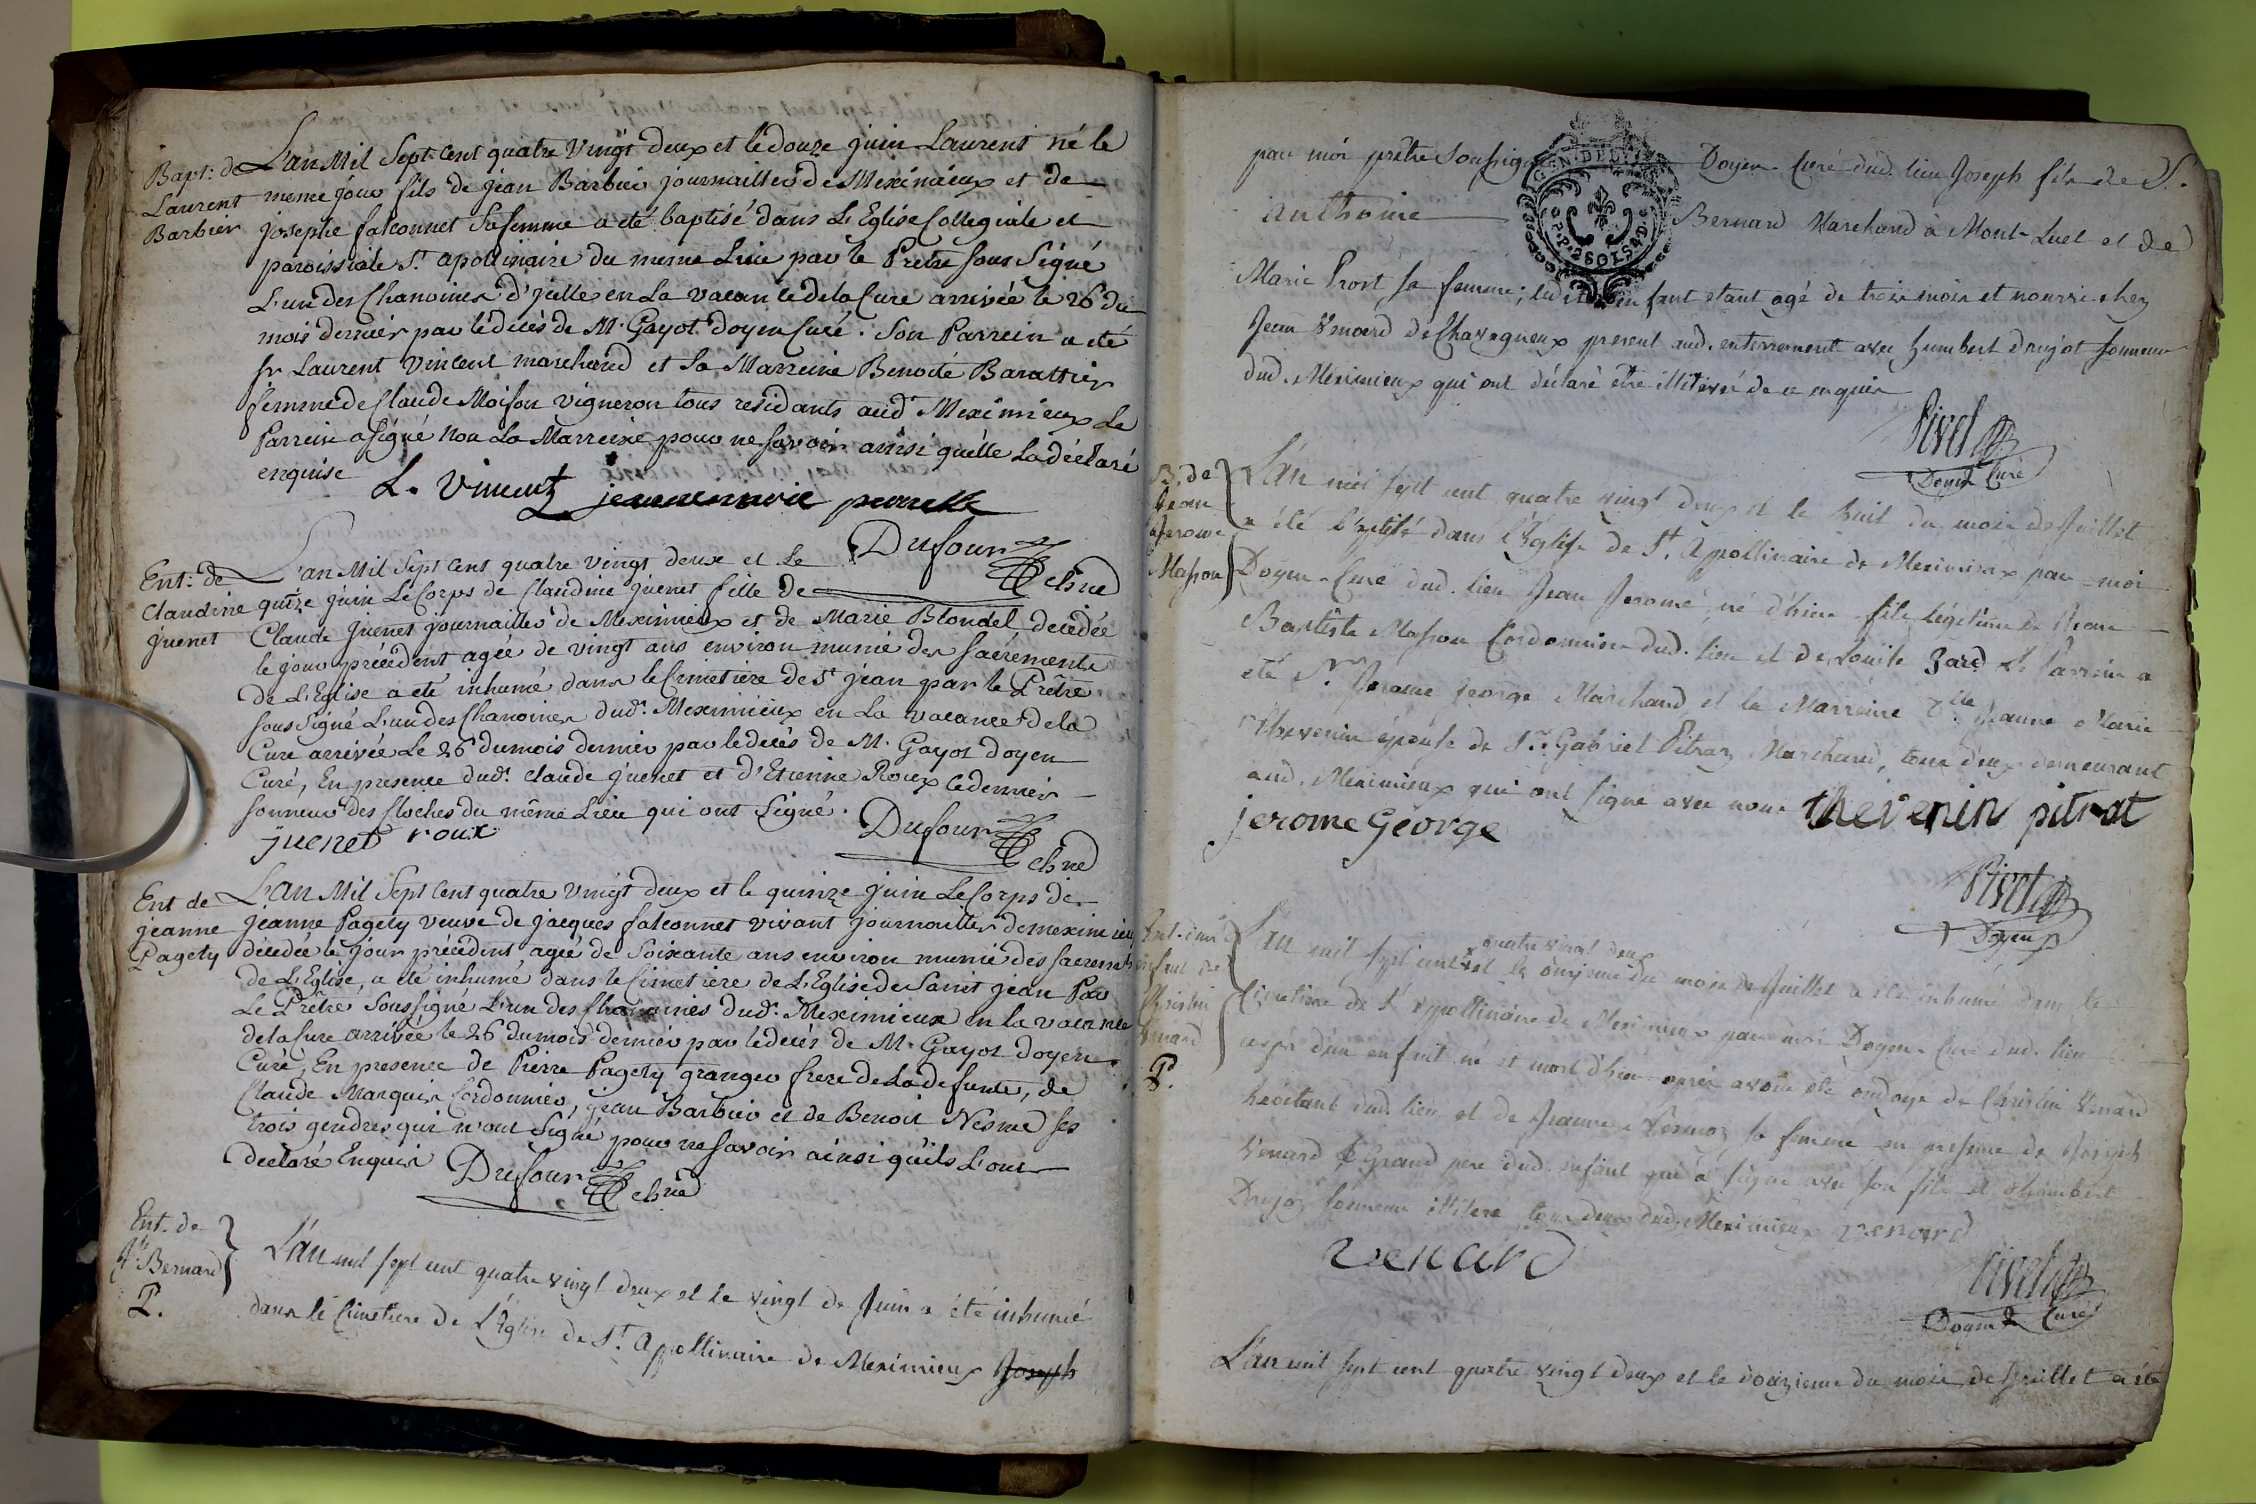 Bapt: de
Laurent
Barbier
L'an Mil Sept Cent quatre Vingt deux et le douze juin Laurent né le
meme jour fils de jean Barbier journaillier de Meximieux et de
josephe falconnet Sa femme a eté baptisé dans L'Eglise Collegiale et
paroissiale St. apollinaire du meme Lieu par le Pretre sous Signé
L'un des Chanoines d'jcelle en La vacance de la Cure arrivée le 26 du
mois dernier par le décés de M. Gayot doyen Curé. Son Parrein a eté
sr Laurent Vincent marchand et Sa Marreine Benoite Barattier
femme de Claude Moison vigneron tous residants aud. Meximieux Le
Parrein a Signé Non La Marreine pour ne savoir ainsi qu'elle La déclaré
enquise
L. Vincent
Dufour
chne
Ent: de
Claudine
juenet
L'an Mil Sept Cent quatre vingt deux et le
quinze juin Le Corps de Claudine juenet fille de
Claude juenet journaillier de Meximieux et de Marie Blondel decedée
le jour précédent agée de vingt ans environ munie des sacréments
de L'Eglise a eté inhumé dans le Cimetiere de St jean par le Prêtre
sous Signé L'un des Chanoines dud. Meximieux en La vacance de la
Cure arrivée Le 26 du mois dernier par le décés de M. Gayot doyen
Curé, En presence dud. Claude juenet et d'Etienne Roux ce dernier
sonneur des Cloches du même Lieu qui ont Signé.
juenet roux
Dufour
chne
Ent de
jeanne
Pagety
L'an Mil Sept Cent quatre Vingt deux et le quinze juin Le Corps de
jeanne Pagety veuve de jacques falconnet vivant journaillier de meximieux
décedée le jour précédent agée de Soixante ans environ munie des sacrements
de L'Eglise, a eté inhumé dans le Cimetiere de L'Eglise de Saint jean Par
Le Prêtre Soussigné L'un des Chanoines dud. Meximieux en la vacance
de la Cure arrivée le 26 du mois dernier par le décés de M. Gayot doyen
Curé, En presence de Pierre Pagety granger frere de La defunte, de
Claude Marquis Cordonnier, jean Barbier et de Benoit Nesme ses
trois gendres qui n'ont Signé pour ne savoir ainsi qu'ils L'ont
declaré Enquis
Dufour
chne
Ent. de
Bernard
P.
L'an mil sept cent quatre vingt deux et le vingt de Juin a été inhumé
dans le Cimetiere de L'Eglise de St. Appollinaire de Meximieux Joseph
par moi prêtre soussigné Doyen Curé dud. lieu Joseph fils de S.
anthoine Bernard Marchand à Mont-Luel et de
GEN. DE
P.P. 2 SOLS 4 D.
Marie Prost sa femme; led. enfant etant agé de trois mois et nourri chez
Jean Venard de Chavagneux present aud. enterrement avec humbert drujot sonneur
dud. Meximieux qui ont déclaré être illiteré de ce enquis
Pivet
Doyen Curé
B. de
Jean
Jerome
Masson
L'an mil sept cent quatre vingt deux et le huit du mois de Juillet
a été baptisé dans l'Eglise de St. Appollinaire de Meximieux par moi
Doyen-Curé dud. lieu Jean Jerome, né d'hier fils légitime de Jean
Baptiste Masson Cordonnier dud. lieu et de Louise Le Parrein a
été Sr. Jerome George Marchand et la Marreine Dlle Jeanne Marie
Thevenin épouse de Sr. Gabriel Pitrat Marchand, tous deux demeurant
aud. Meximieux qui ont signé avec nous thevenin pitrat
jerome George
Pivet
Doyen
enfant de
Christin
Venard
P.
quatre vingt deux
L'an mil sept cent et le onzieme du mois de Juillet a été inhumé dans le
Cimetiere de St Appollinaire de Meximieux par moi Doyen-Curé dud. lieu le
corps d'un enfant né et mort d'hier après avoir été ondoyé de Christin Venard
habitant dud. lieu et de Jeanne sa femme en presence de Joseph
Venard Grand pere dud. enfant qui a signé avec son fils et humbert
Drujot sonneur illiteré tous deux dud. Meximieux venard
venard
Pivet
Doyen Curé
L'an mil sept cent quatre vingt deux et le douzieme du mois de Juillet a été